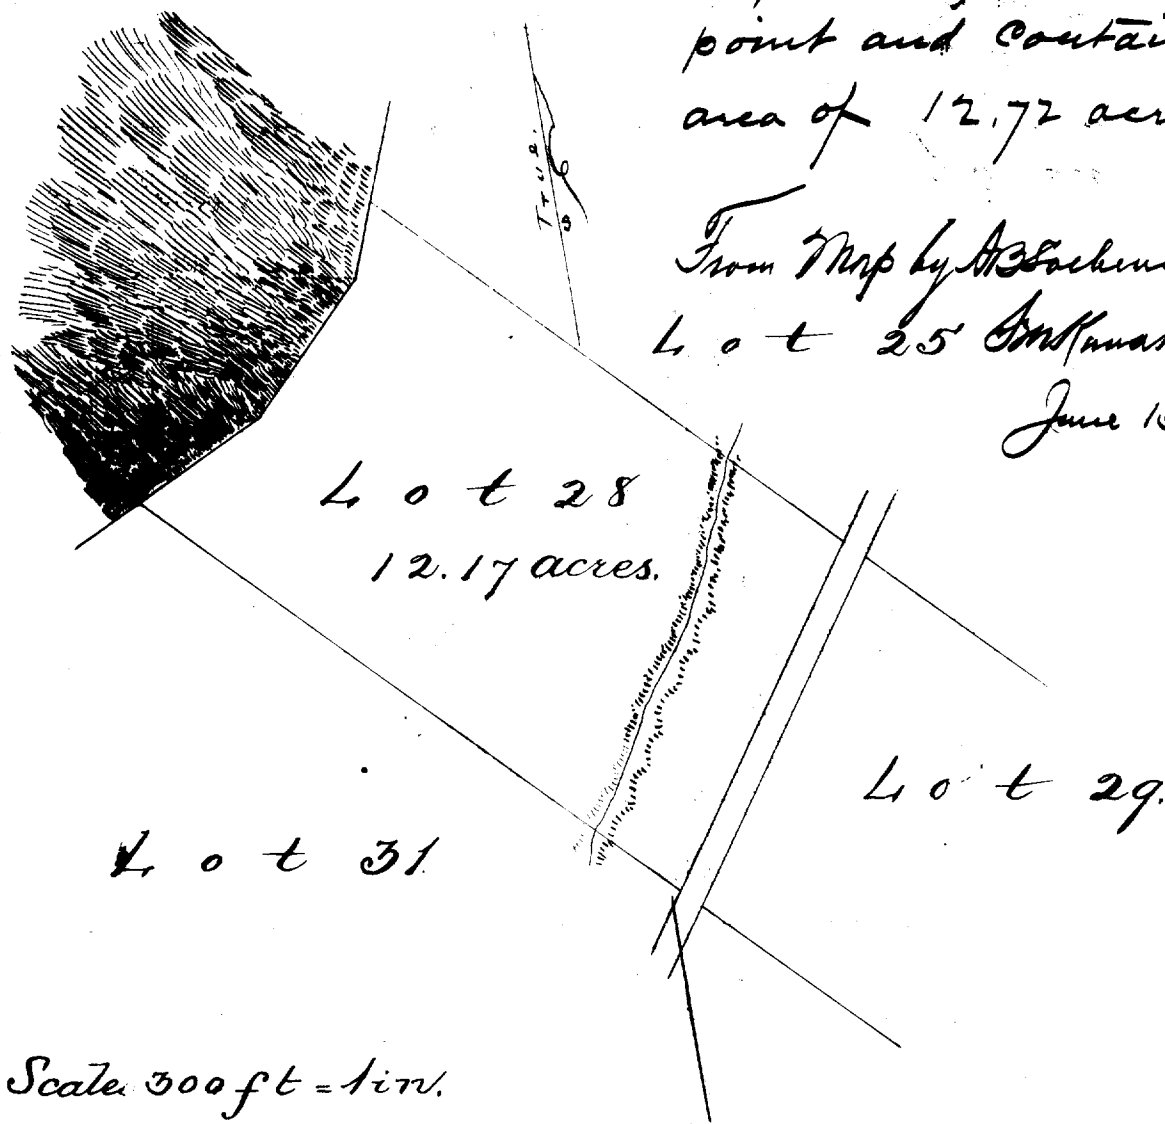 point and contai
area of 12.72 acr
True
S
From Map by
Lot 25
June 1
Lot 28
12.17 acres.
Lot 29.
Lot 31
Scale 300 ft = 1 in.